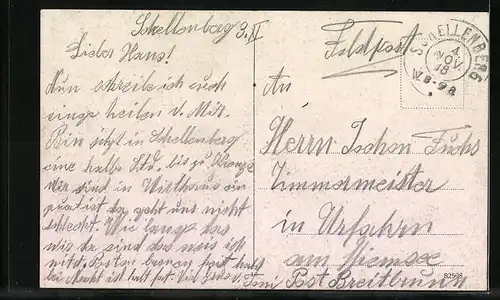 Schellenberg 3. XI
Lieber Hans!
Nun schreibe ich euch
einige Zeilen v. Mir.
Bin jetzt in Schellenberg
eine halbe Std. bis zu Grenze
Wir sind in Wirtshaus ein
quatiert da geht uns nicht
schlecht. Wie lang das
wir da sind das weis ich
nitd. Posten
bei Nacht ist halt
Feldpost
SCHELLENBERG
4 NOV. 18
An
Herrn Fuchs
Zimmermeister
in Urfahrn
am Kiemsee
Post Breitbrunn
82508